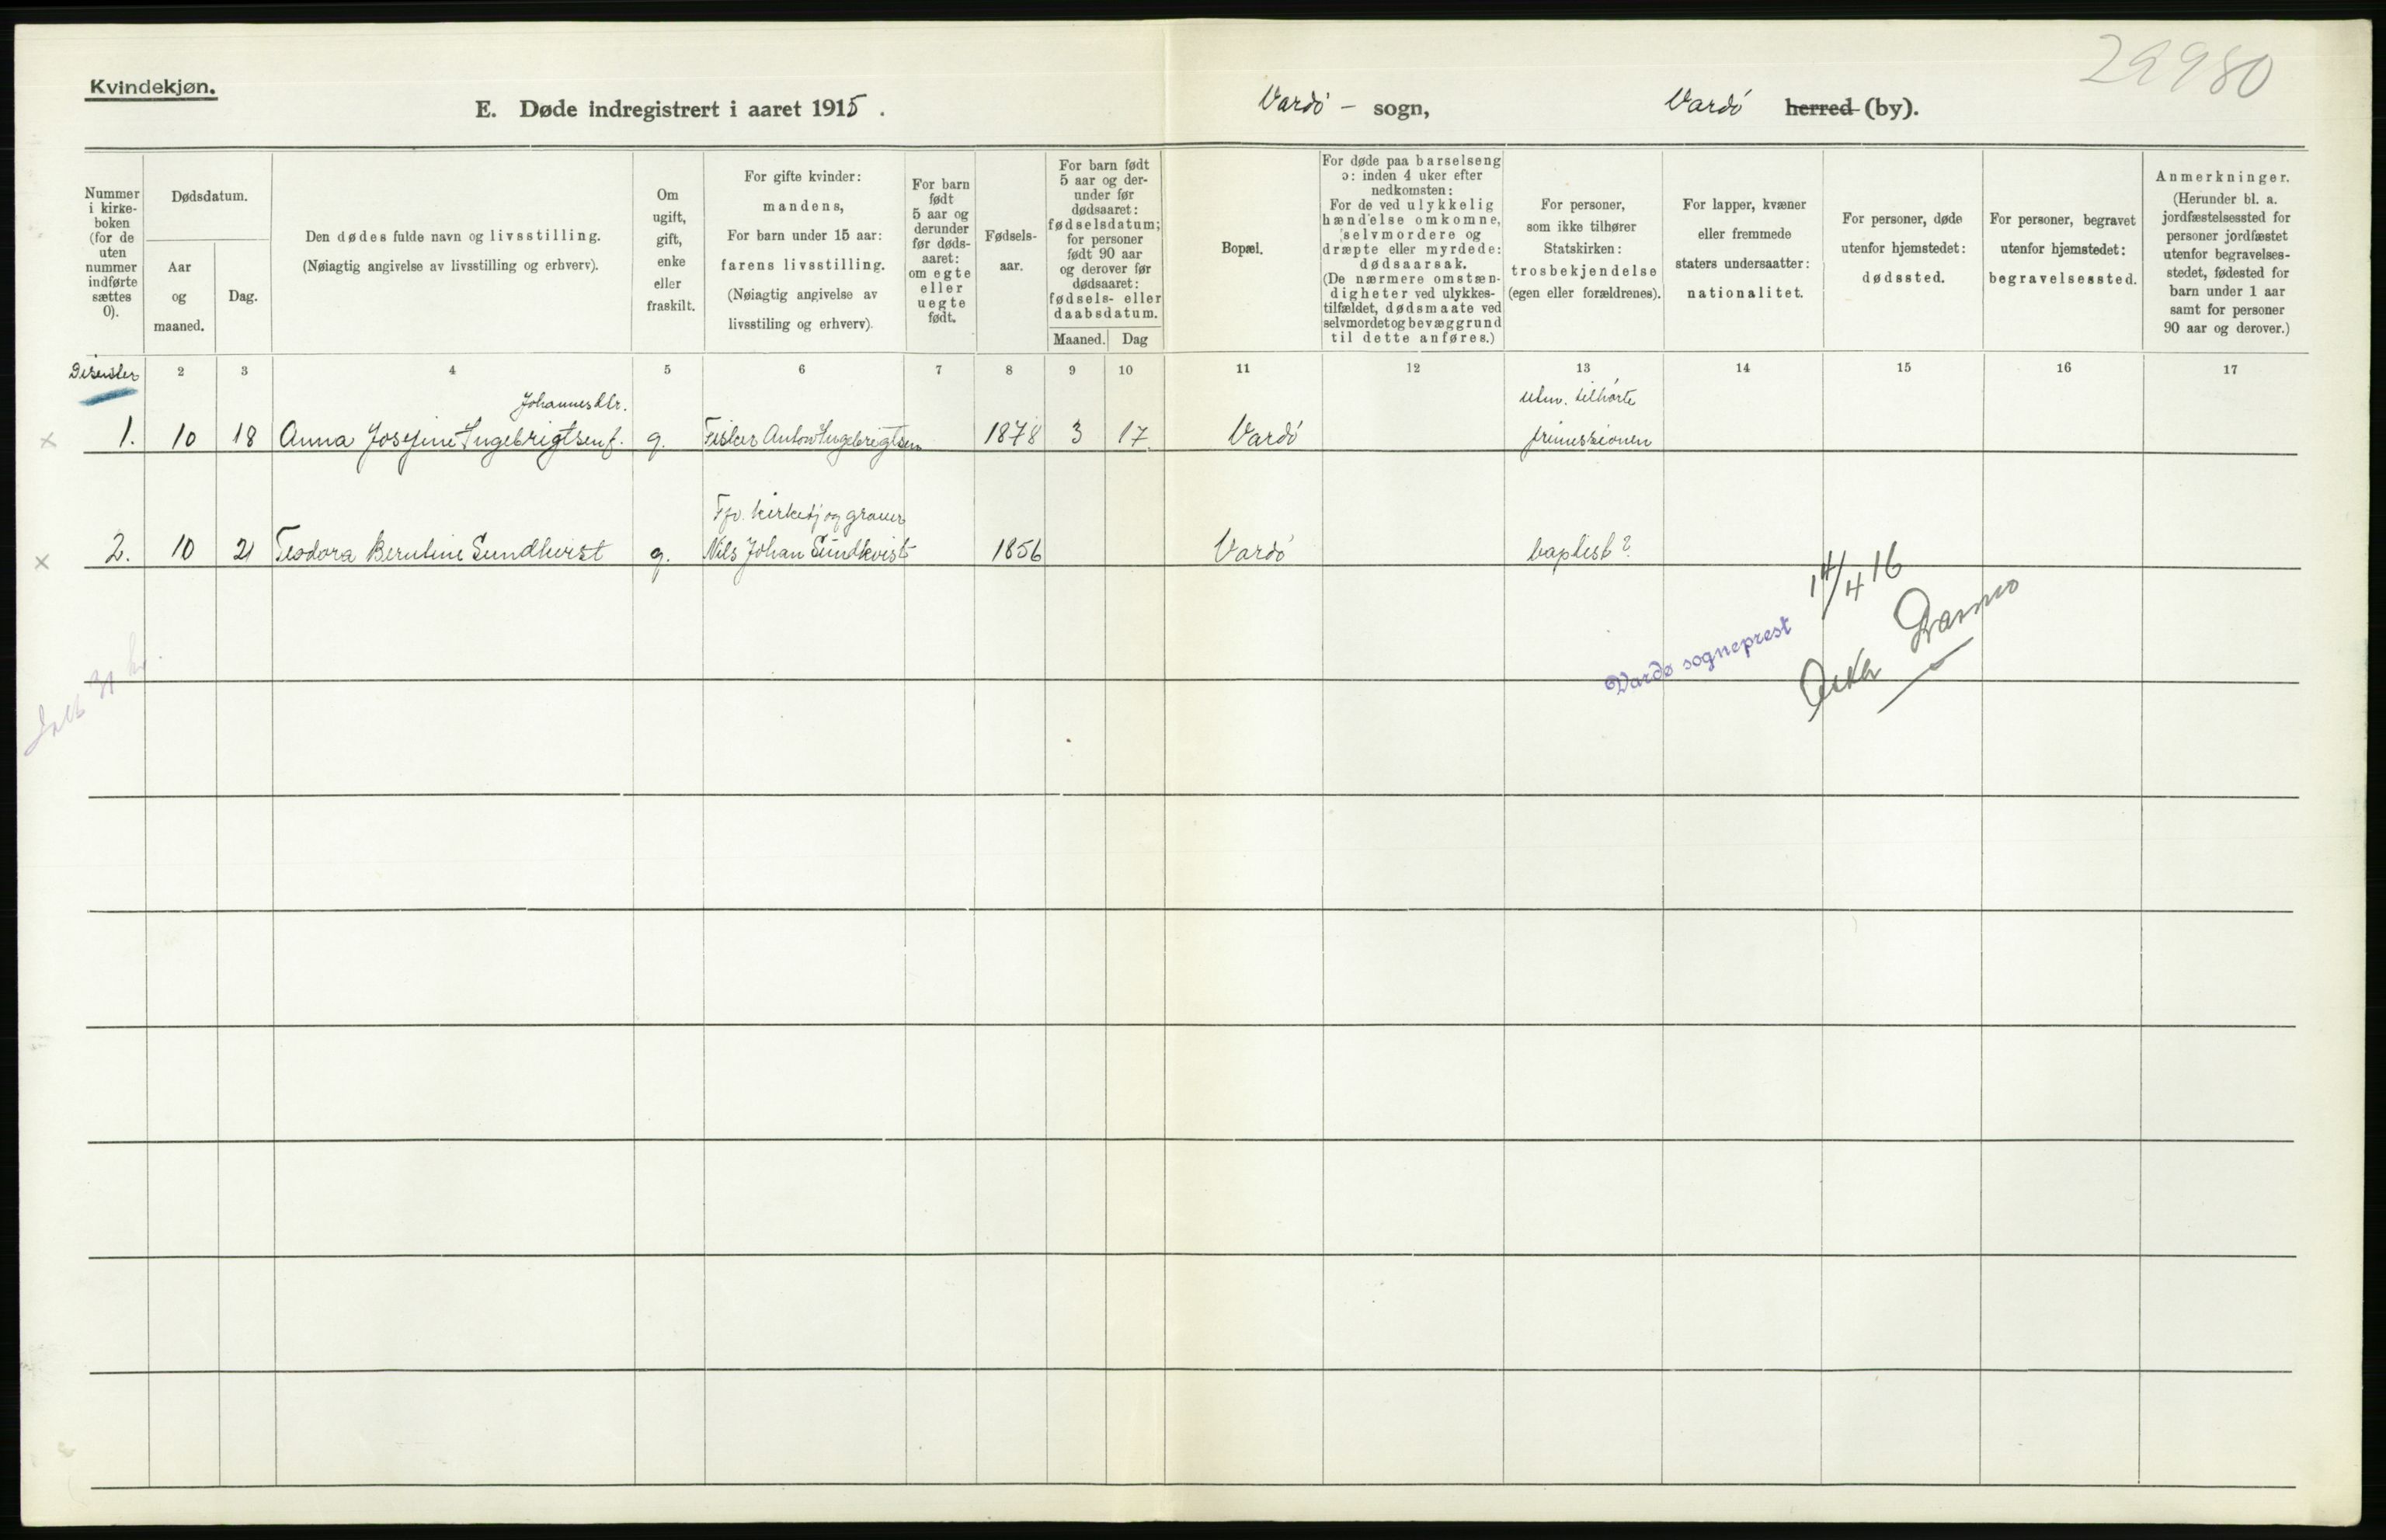 29980
Kvindekjøn.
E. Døde indregistrert i aaret 1915.
Vardø – sogn,
Vardø herred (by).
Nummer
i kirke-
boken
(for de
uten
nummer
indførte
sættes
0).
Dødsdatum.
Aar
og
maaned.
Dag.
Den dødes fulde navn og livsstilling.
(Nøiagtig angivelse av livsstilling og erhverv).
Om
ugift,
gift,
enke
eller
fraskilt.
For gifte kvinder:
mandens,
For barn under 15 aar:
farens livsstilling.
(Nøiagtig angivelse av
livsstiling og erhverv).
For barn
født
5 aar og
derunder
før døds-
aaret:
om egte
eller
uegte
født.
Fødsels-
aar.
For barn født
5 aar og der-
under før
dødsaaret:
fødselsdatum;
for personer
født 90 aar
og derover før
dødsaaret:
fødsels- eller
daabsdatum.
Maaned.
Dag
Bopæl.
For døde paa barselseng
ɔ: inden 4 uker efter
nedkomsten:
For de ved ulykkelig
hændelse omkomne,
selvmordere og
dræpte eller myrdede:
dødsaarsak.
(De nærmere omstæn-
digheter ved ulykkes-
tilfældet, dødsmaate ved
selvmordet og bevæggrund
til dette anføres.)
For personer,
som ikke tilhører
Statskirken:
trosbekjendelse
(egen eller forældrenes).
For lapper, kvæner
eller fremmede
staters undersaatter:
nationalitet.
For personer, døde
utenfor hjemstedet:
dødssted.
For personer, begravet
utenfor hjemstedet:
begravelsessted.
Anmerkninger.
(Herunder bl. a.
jordfæstelsessted for
personer jordfæstet
utenfor begravelses-
stedet, fødested for
barn under 1 aar
samt for personer
90 aar og derover.)
Disenter 2 3 4 5 6 7 8 9 10 11 12 13 14 15 16 17
Johannesdtr. utm. tilhørte
× 1. 10 18 Anna Josefine Ingebrigtsen f. g. Fisker Anton Ingebrigtsen 1878 3 17. Vardø frimissionen
Fhv. kirketj og graver
× 2. 10 21 Teodora Berntine Sundkvist g. Nils Johan Sundkvist 1856 Vardø baptist?
14/4 16
Vardø sogneprest